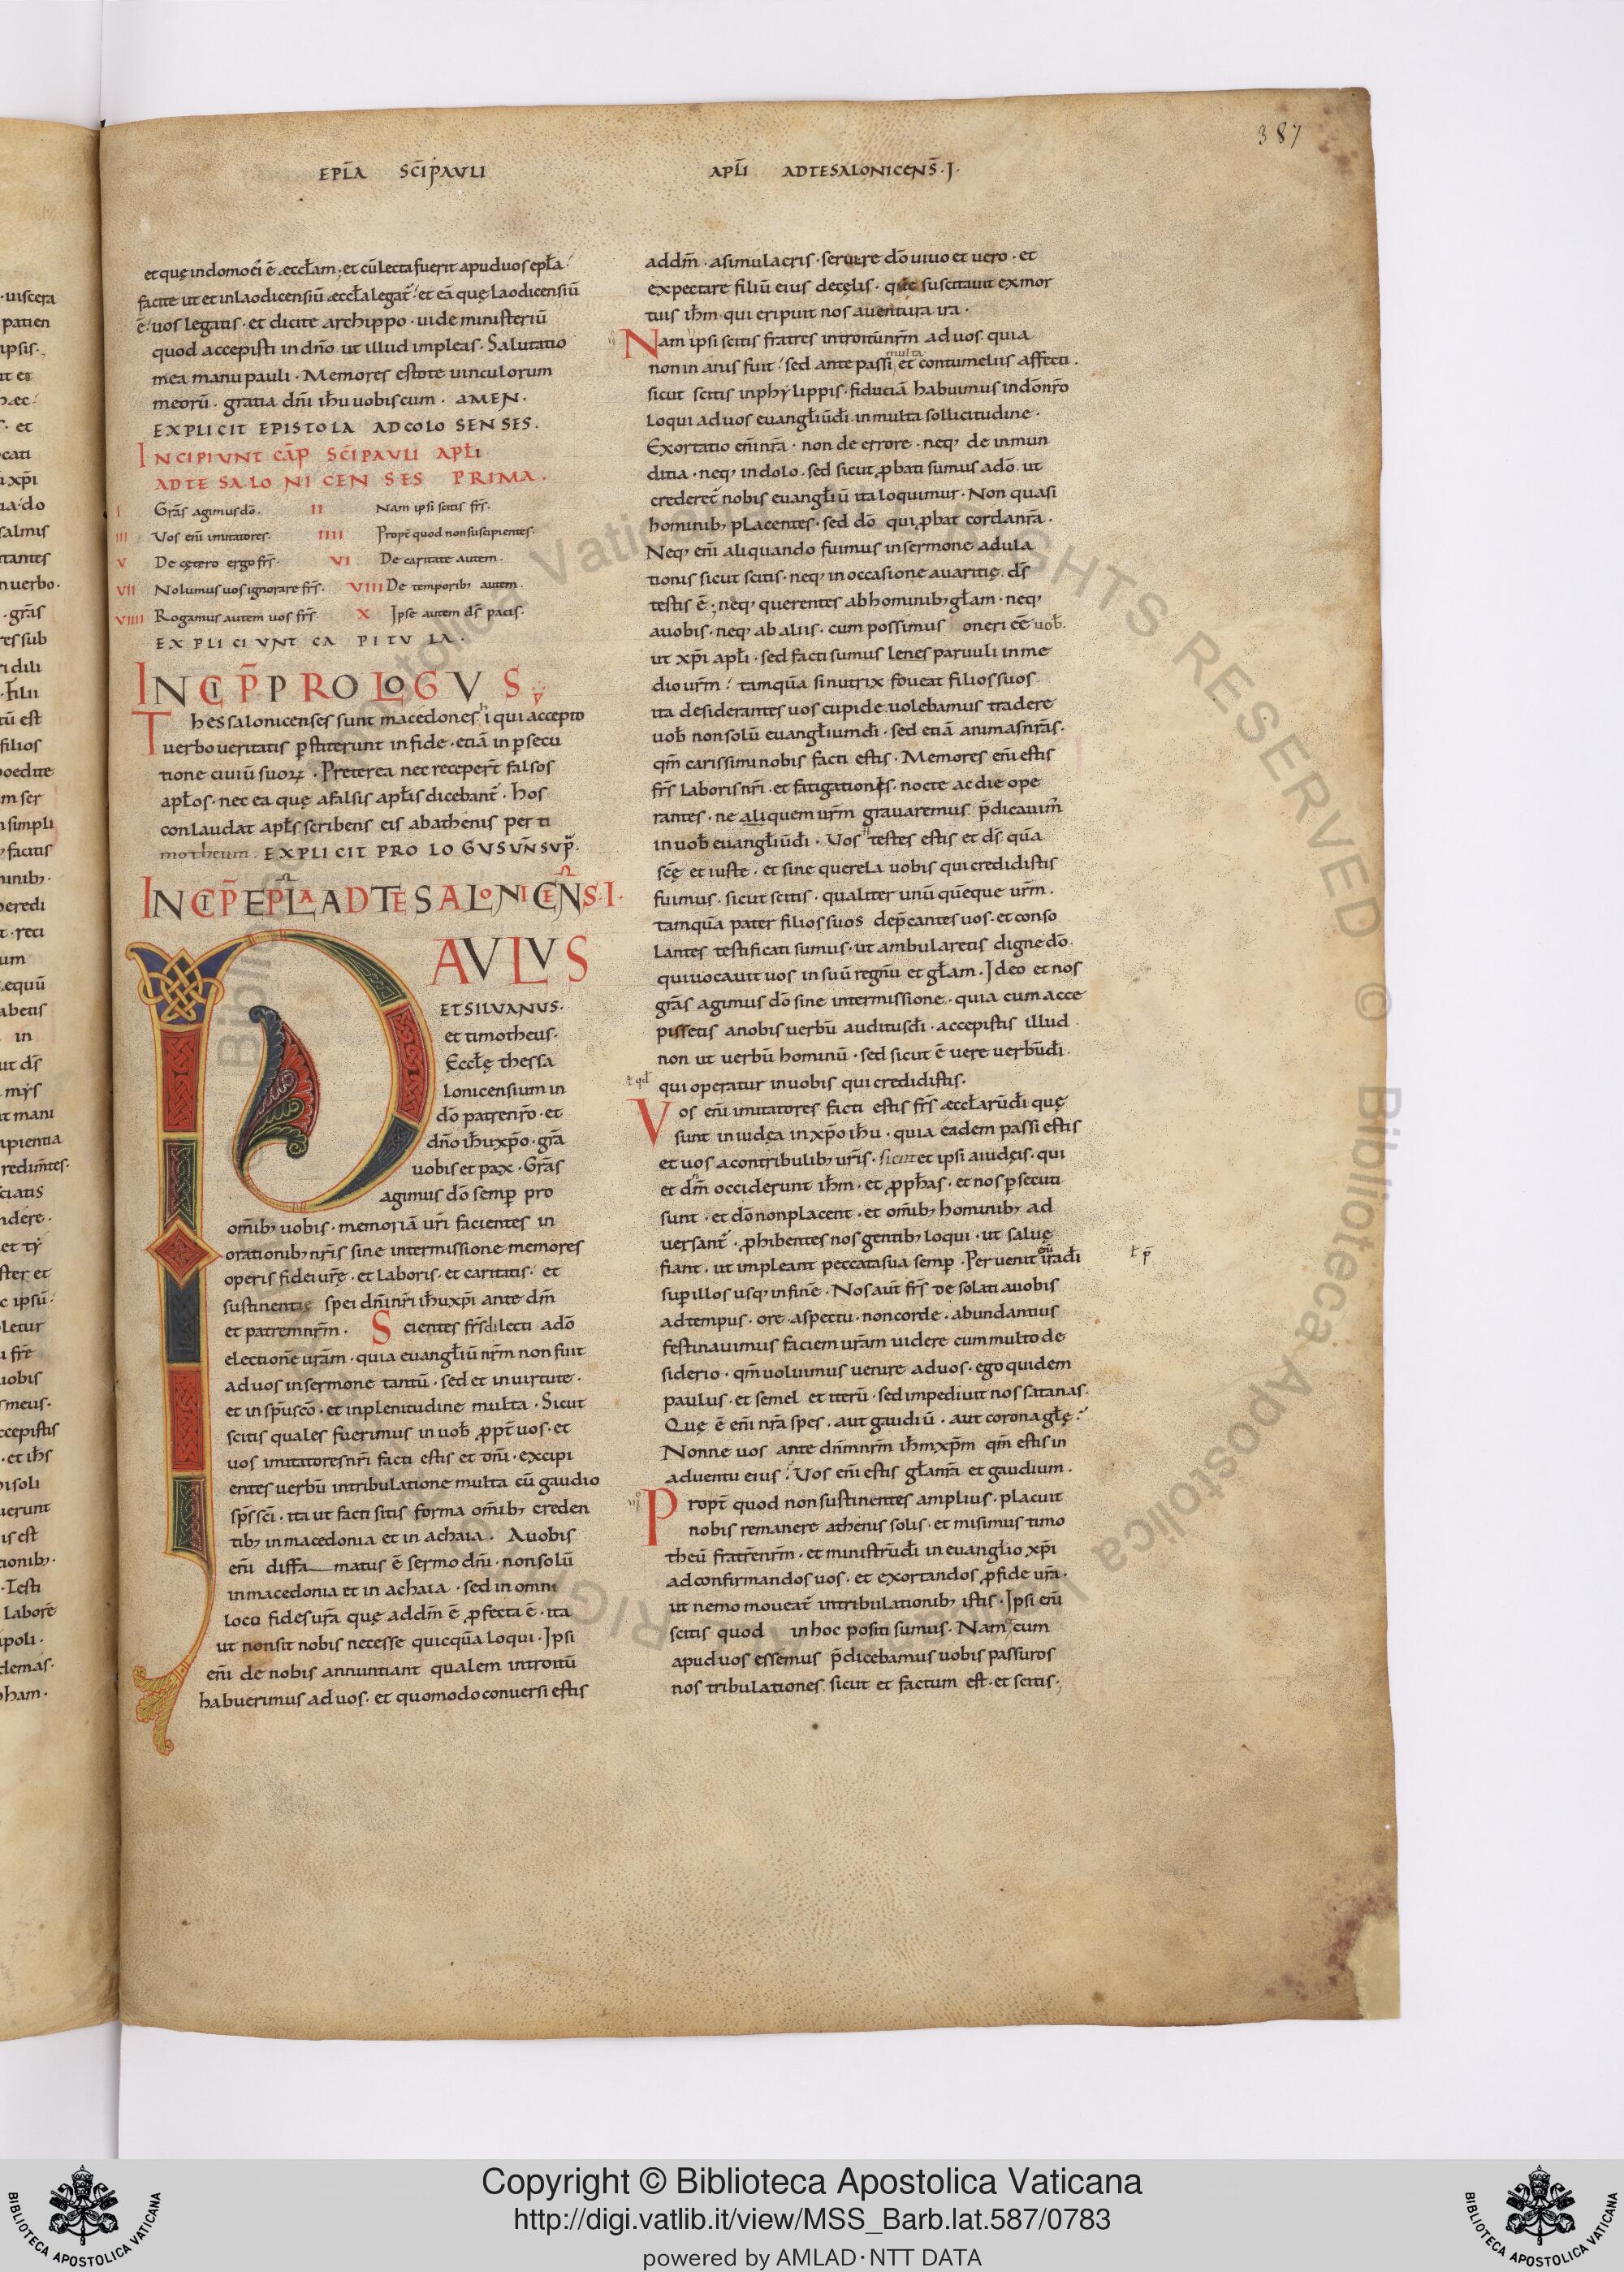 387
EPL̄A SC̄I PAVLI APL̄I AD TESALONICENS̄·I·
et quę in domo ei ē æccl̄am; et cū lecta fuerit apud uos epl̄a
facite ut et in laodicensiū æccl̄a legat̄; et eā quę laodicensiū
ē uos legatis · et dicite archippo · uide ministeriū
quod accepisti in dn̄o ut illud impleas · Salutatio
mea manu pauli · Memores estote uinculorum
meorū · gratia dn̄i ih̄u uobiscum · AMEN ·
EXPLICIT EPISTOLA AD COLOSENSES ·
INCIPIVNT CAP̄ SC̄I PAVLI APL̄I
AD TESALONICENSES PRIMA ·
I Grās agimus dō · II Nam ipsi scitis frs̄ ·
III Vos eni̅ imitatores · IIII Propt̄ quod non suscipientes ·
V De cętero ergo frs̄ · VI De caritate autem ·
VII Nolumus uos ignorare frs̄ · VIII De temporib; autem ·
VIIII Rogamus autem uos frs̄ · X Ipse autem ds̄ pacis ·
EXPLICIUNT CAPITULA ·
INCIP̄ PROLOGVS
Thessalonicenses sunt macedones hi qui accepto
uerbo ueritatis ꝑstiterunt in fide · etiā in ꝑsecu
tione ciuiū suoꝝ · Preterea nec recepert̄ falsos
apl̄os · nec ea quę a falsis apl̄is dicebant̄ · hos
conlaudat apl̄s scribens eis ab athenis per ti
motheum · EXPLICIT PROLOGUS
INCIP̄ EPL̄A AD TESALONICEN̄S · I ·
PAVLVS
ET SILVANUS ·
et timotheus ·
Eccl̄ę thessa
lonicensium in
dō patre nr̄o · et
dn̄o ih̄u xp̄o · gr̄a
uobis et pax · Gr̄as
agimus dō semꝑ pro
om̄ib; uobis · memoriā ur̄i facientes in
orationib; nr̄is sine intermissione memores
operis fidei ur̄ę · et laboris · et caritatis · et
sustinentię spei dn̄i nr̄i ih̄u xp̄i ante dm̄
et patrem nr̄m · Scientes frs̄ dilecti a dō
electionē ur̄am · quia euangl̄iū nr̄m non fuit
ad uos in sermone tantū · sed et in uirtute ·
et in sp̄u scō · et in plenitudine multa · Sicut
scitis quales fuerimus in uob̄ ꝓpt̄ uos · et
uos imitatores nr̄i facti estis et dn̄i · excipi
entes uerbū in tribulatione multa cū gaudio
sp̄s sc̄i · ita ut facti sitis forma om̄ib; creden
tib; in macedonia et in achaia · A uobis
eni̅ diffamatus ē sermo dn̄i · non solū
in macedonia et in achaia · sed in omni
loco fides ur̄a quę ad dm̄ ē ꝓfecta ē · ita
ut non sit nobis necesse quicquā loqui · Ipsi
eni̅ de nobis annuntiant qualem introitū
habuerimus ad uos · et quomodo conuersi estis
ad dm̄ · a simulacris · seruire dō uiuo et uero · et
expectare filiū eius de cęlis · quē suscitauit ex mor
tuis ih̄m · qui eripuit nos a uentura ira ·
Nam ipsi scitis fratres introitū nr̄m ad uos quia
non inanis fuit · sed ante passi multa et contumeliis affecti ·
sicut scitis in phylippis · fiduciā habuimus in dō nr̄o
loqui ad uos euangl̄iū dī · in multa sollicitudine ·
Exortatio eni̅ nr̄a · non de errore · neq; de inmun
ditia · neq; in dolo · sed sicut ꝓbati sumus a dō ut
crederet̄ nobis euangl̄iū ita loquimur · Non quasi
hominib; placentes · sed dō qui ꝓbat corda nr̄a ·
Neq; eni̅ aliquando fuimus in sermone adula
tionis sicut scitis · neq; in occasione auaritię ds̄
testis ē · neq; querentes ab hominib; gl̄am · neq;
a uobis · neq; ab aliis · cum possimus oneri eē uob̄ ·
ut xp̄i apl̄i · sed facti sumus lenes paruuli in me
dio ur̄m · tamquā si nutrix foueat filios suos ·
ita desiderantes uos cupide uolebamus tradere
uob̄ non solū euangl̄ium dī · sed etiā animas nr̄as ·
qm̄ carissimi nobis facti estis · Memores eni̅ estis
frs̄ laboris nr̄i · et fatigationis · nocte ac die ope
rantes · ne aliquem ur̄m grauaremus p̄dicauim̄
in uob̄ euangl̄iū dī · Vos testes estis et ds̄ quā
sc̄ę et iuste · et sine querela uobis qui credidistis
fuimus · sicut scitis · qualiter unū quēque ur̄m ·
tamquā pater filios suos dep̄cantes uos · et conso
lantes testificati sumus · ut ambularetis digne dō ·
qui uocauit uos in suū regnū et gl̄am · Ideo et nos
gr̄as agimus dō sine intermissione · quia cum acce
pissetis a nobis uerbū auditus dī · accepistis illud
non ut uerbū hominū · sed sicut ē uere uerbū dī ·
qui operatur in uobis qui credidistis ·
Vos eni̅ imitatores facti estis frs̄ æccl̄arū dī quę
sunt in iudęa in xp̄o ih̄u · quia eadem passi estis
et uos a contribulib; ur̄is · sicut et ipsi a iudęis · qui
et dn̄m occiderunt ih̄m · et ꝓph̄as · et nos ꝑsecuti
sunt · et dō non placent · et om̄ib; hominib; ad
uersant̄ · ꝓhibentes nos gentib; loqui · ut saluę
fiant · ut impleant peccata sua semꝑ · Peruenit eni̅ ira dī
suꝑ illos usq; in finē · Nos aut̄ frs̄ desolati a uobis
ad tempus · ore · aspectu · non corde · abundantius
festinauimus faciem ur̄am uidere cum multo de
siderio · qm̄ uoluimus uenire ad uos · ego quidem
paulus · et semel et iterū · sed impediuit nos satanas ·
Quę ē eni̅ nr̄a spes · aut gaudiū · aut corona gl̄ę ·
Nonne uos ante dn̄m nr̄m ih̄m xp̄m qm̄ estis in
aduentu eius · Vos eni̅ estis gl̄a nr̄a et gaudium ·
Propt̄ quod non sustinentes amplius · placuit
nobis remanere athenis solis · et misimus timo
theū fratrē nr̄m · et ministrū dī in euangl̄io xp̄i
ad confirmandos uos · et exortandos ꝓ fide ur̄a ·
ut nemo moueat̄ in tribulationib; istis · Ipsi eni̅
scitis quod in hoc positi sumus · Nam et cum
apud uos essemus p̄dicebamus uobis passuros
nos tribulationes sicut et factum est · et scitis ·
Copyright © Biblioteca Apostolica Vaticana
http://digi.vatlib.it/view/MSS_Barb.lat.587/0783
powered by AMLAD·NTT DATA
BIBLIOTECA APOSTOLICA VATICANA
BIBLIOTECA APOSTOLICA VATICANA